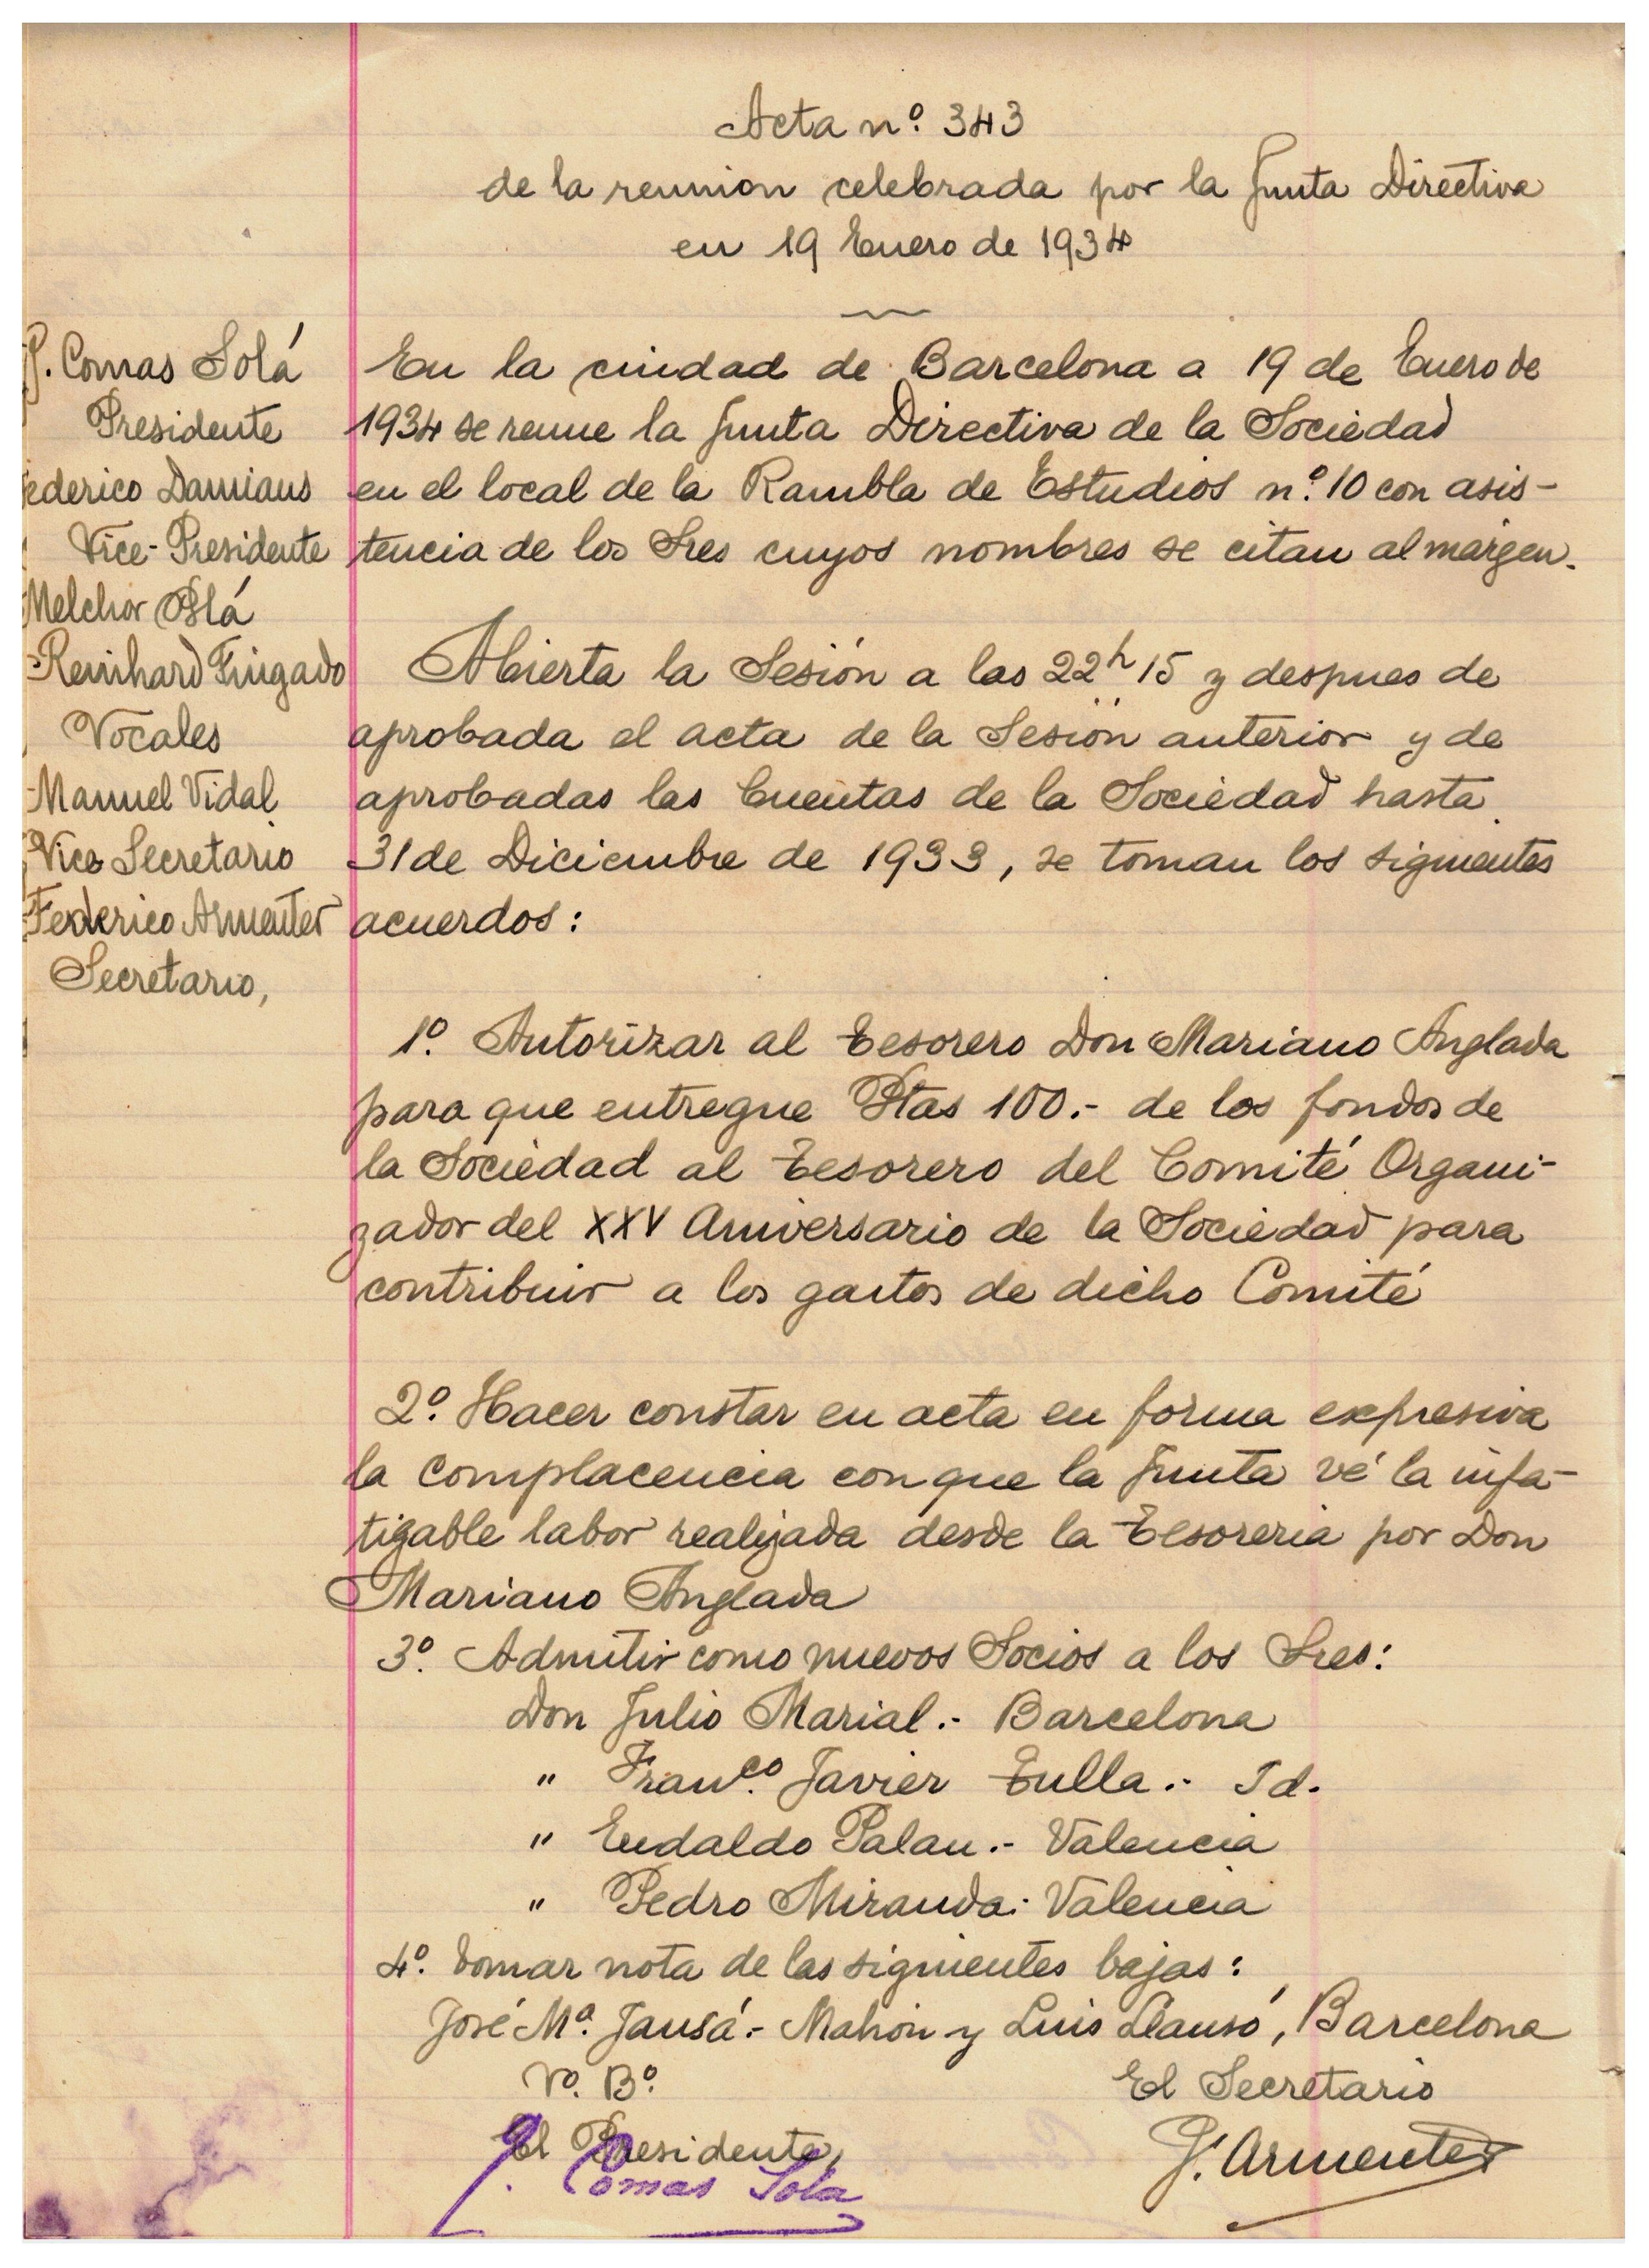 Acta nº. 343
de la reunion celebrada por la Junta Directiva
en 19 Enero de 1934
J. Comas Solá
Presidente
ederico Damians
Vice-Presidente
Melchor Plá
Reinhard Fringado
Vocales
Manuel Vidal
Vice Secretario
Federico Armenter
Secretario,
En la ciudad de Barcelona a 19 de Enero de
1934 se reune la Junta Directiva de la Sociedad
en el local de la Rambla de Estudios nº. 10 con asis-
tencia de los Sres cuyos nombres se citan al márgen.
Abierta la Sesión a las 22h 15 y despues de
aprobada el acta de la Sesión anterior y de
aprobadas las Cuentas de la Sociedad hasta
31 de Diciembre de 1933, se toman los siguientes
acuerdos:
1º. Autorizar al Tesorero Don Mariano Anglada
para que entregue Ptas 100.- de los fondos de
la Sociedad al Tesorero del Comité Organi-
zador del XXV Aniversario de la Sociedad para
contribuir a los gastos de dicho Comité
2º. Hacer constar en acta en forma expresiva
la complacencia con que la Junta vé la infa-
tigable labor realizada desde la Tesoreria por Don
Mariano Anglada
3º. Admitir como nuevos Socios a los Sres:
Don Julio Marial.- Barcelona
" Franco. Javier Tulla.- Id.
" Eudaldo Palau.- Valencia
" Pedro Miranda.- Valencia
4º. Tomar nota de las siguientes bajas:
José Mª. Jansá.- Mahón y Luis Llausó, Barcelona
Vº. Bº.
El Presidente,
J. Comas Solá
El Secretario
F. Armenter